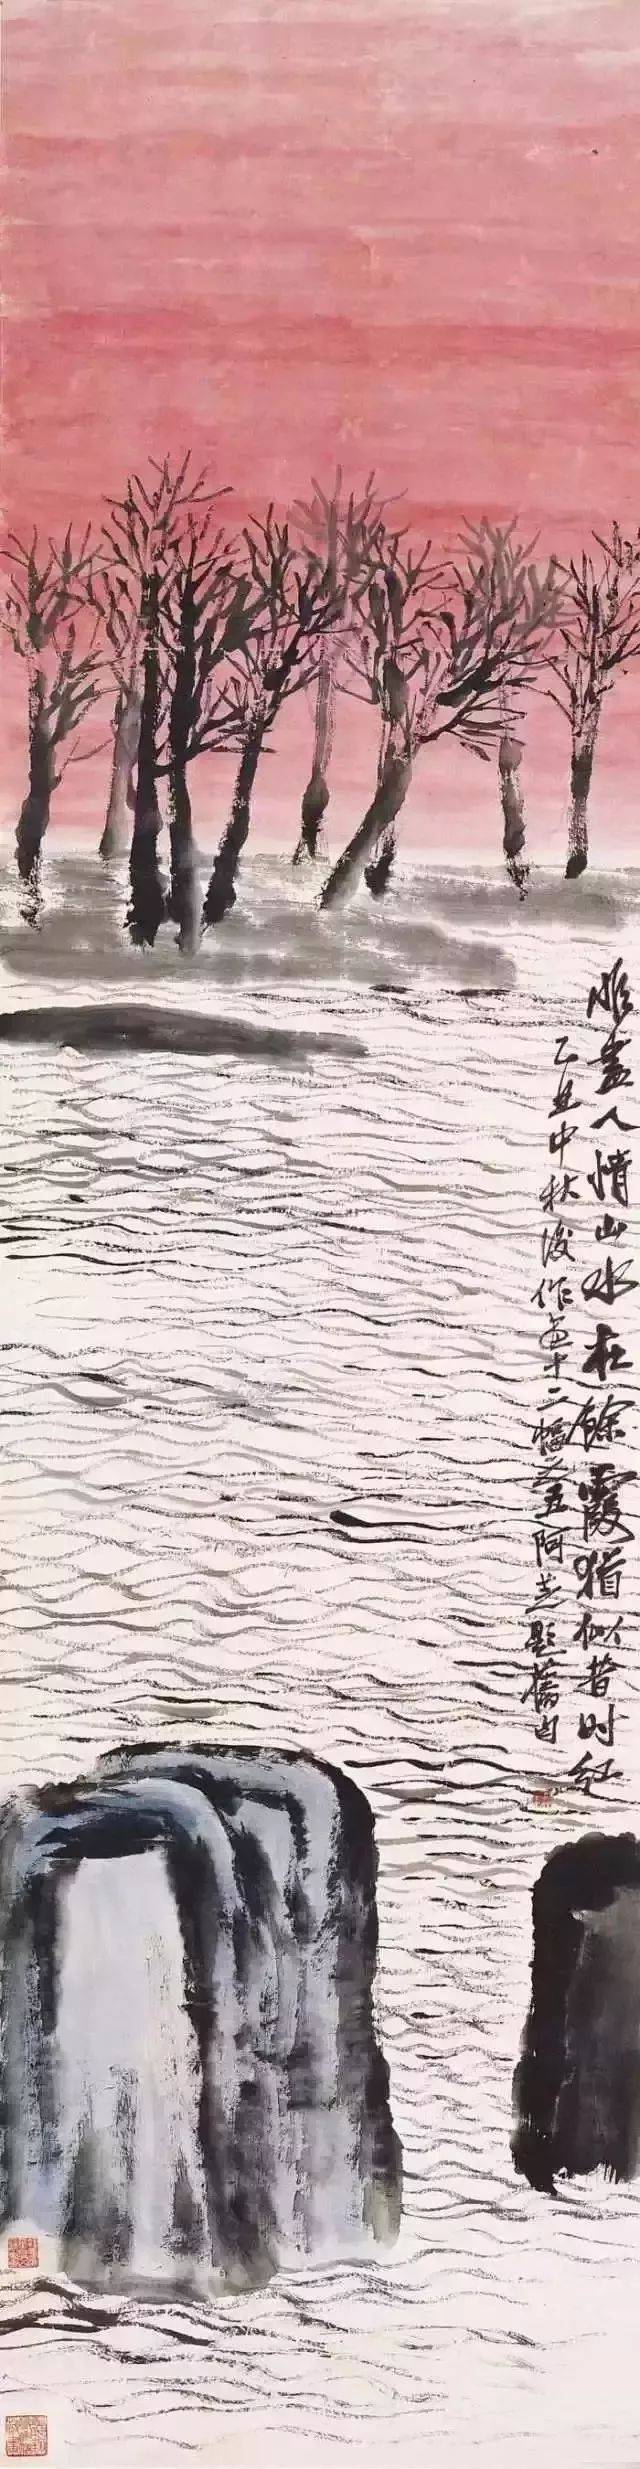 盡人情山水在餘霞猶似昔时紅
乙丑中秋後作畫十二幅之五阿芝題舊句